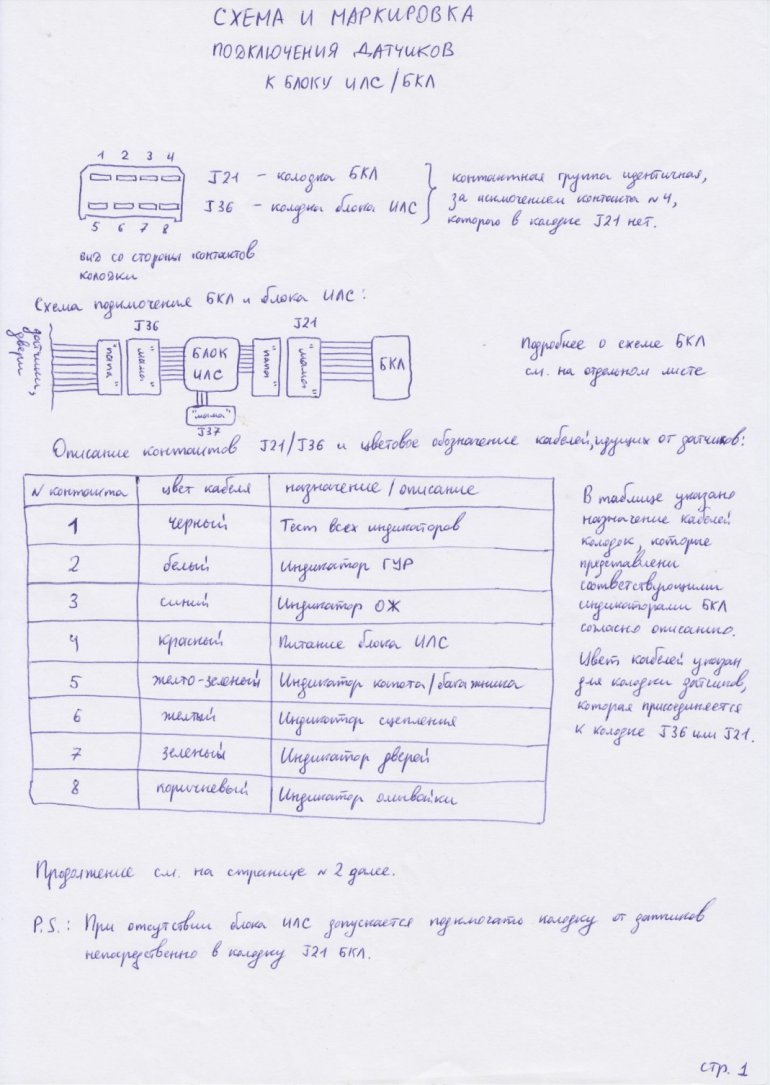 СХЕМА И МАРКИРОВКА
ПОДКЛЮЧЕНИЯ ДАТЧИКОВ
К БЛОКУ ИЛС/БКЛ
1 2 3 4
5 6 7 8
J21 – колодка БКЛ
J36 – колодка блока ИЛС
контактная группа идентичная,
за исключением контакта №4,
которого в колодке J21 нет.
вид со стороны контактов
колодки
Схема подключения БКЛ и блока ИЛС:
датчики,
двери
J36
J21
"папа"
"мама"
БЛОК
ИЛС
"папа"
"мама"
БКЛ
"мама"
J37
Подробнее о схеме БКЛ
см. на отдельном листе
Описание контактов J21/J36 и цветовое обозначение кабелей, идущих от датчиков:
N контакта цвет кабеля назначение/описание
1 черный Тест всех индикаторов
2 белый Индикатор ГУР
3 синий Индикатор ОЖ
4 красный Питание блока ИЛС
5 желто-зеленый Индикатор капота/багажника
6 желтый Индикатор сцепления
7 зеленый Индикатор дверей
8 коричневый Индикатор омывайки
В таблице указано
назначение кабелей
колодок, которые
представлены
соответствующими
индикаторами БКЛ
согласно описанию.
Цвет кабелей указан
для колодки датчиков,
которая присоединяется
к колодке J36 или J21.
Продолжение см. на странице №2 далее.
P.S.: При отсутствии блока ИЛС допускается подключать колодку от датчиков
непосредственно в колодку J21 БКЛ.
стр. 1